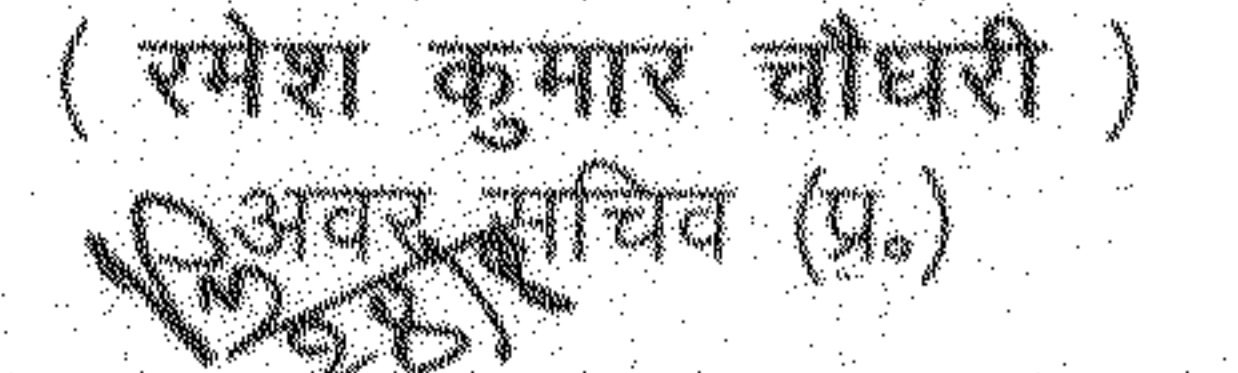 ( रमेश कुमार चौधरी )
अवर सचिव (प्र०)